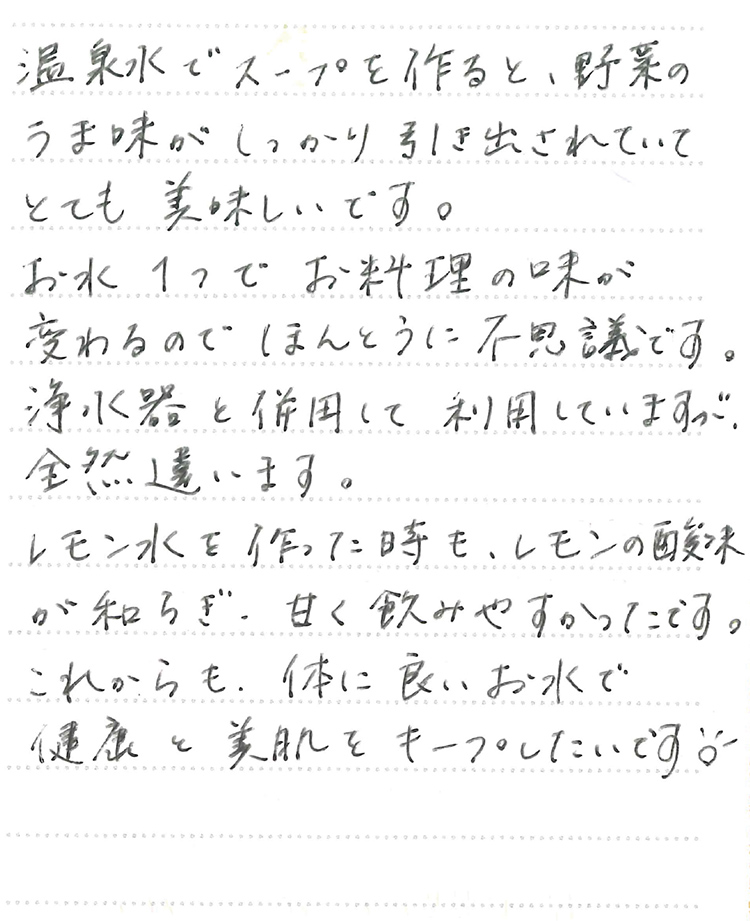 温泉水でスープを作ると、野菜の
うま味がしっかり引き出されていて
とても美味しいです。
お水1つでお料理の味が
変わるのでほんとうに不思議です。
浄水器と併用して利用していますが、
全然違います。
レモン水を作った時も、レモンの酸味
が和らぎ、甘く飲みやすかったです。
これからも、体に良いお水で
健康と美肌をキープしたいです